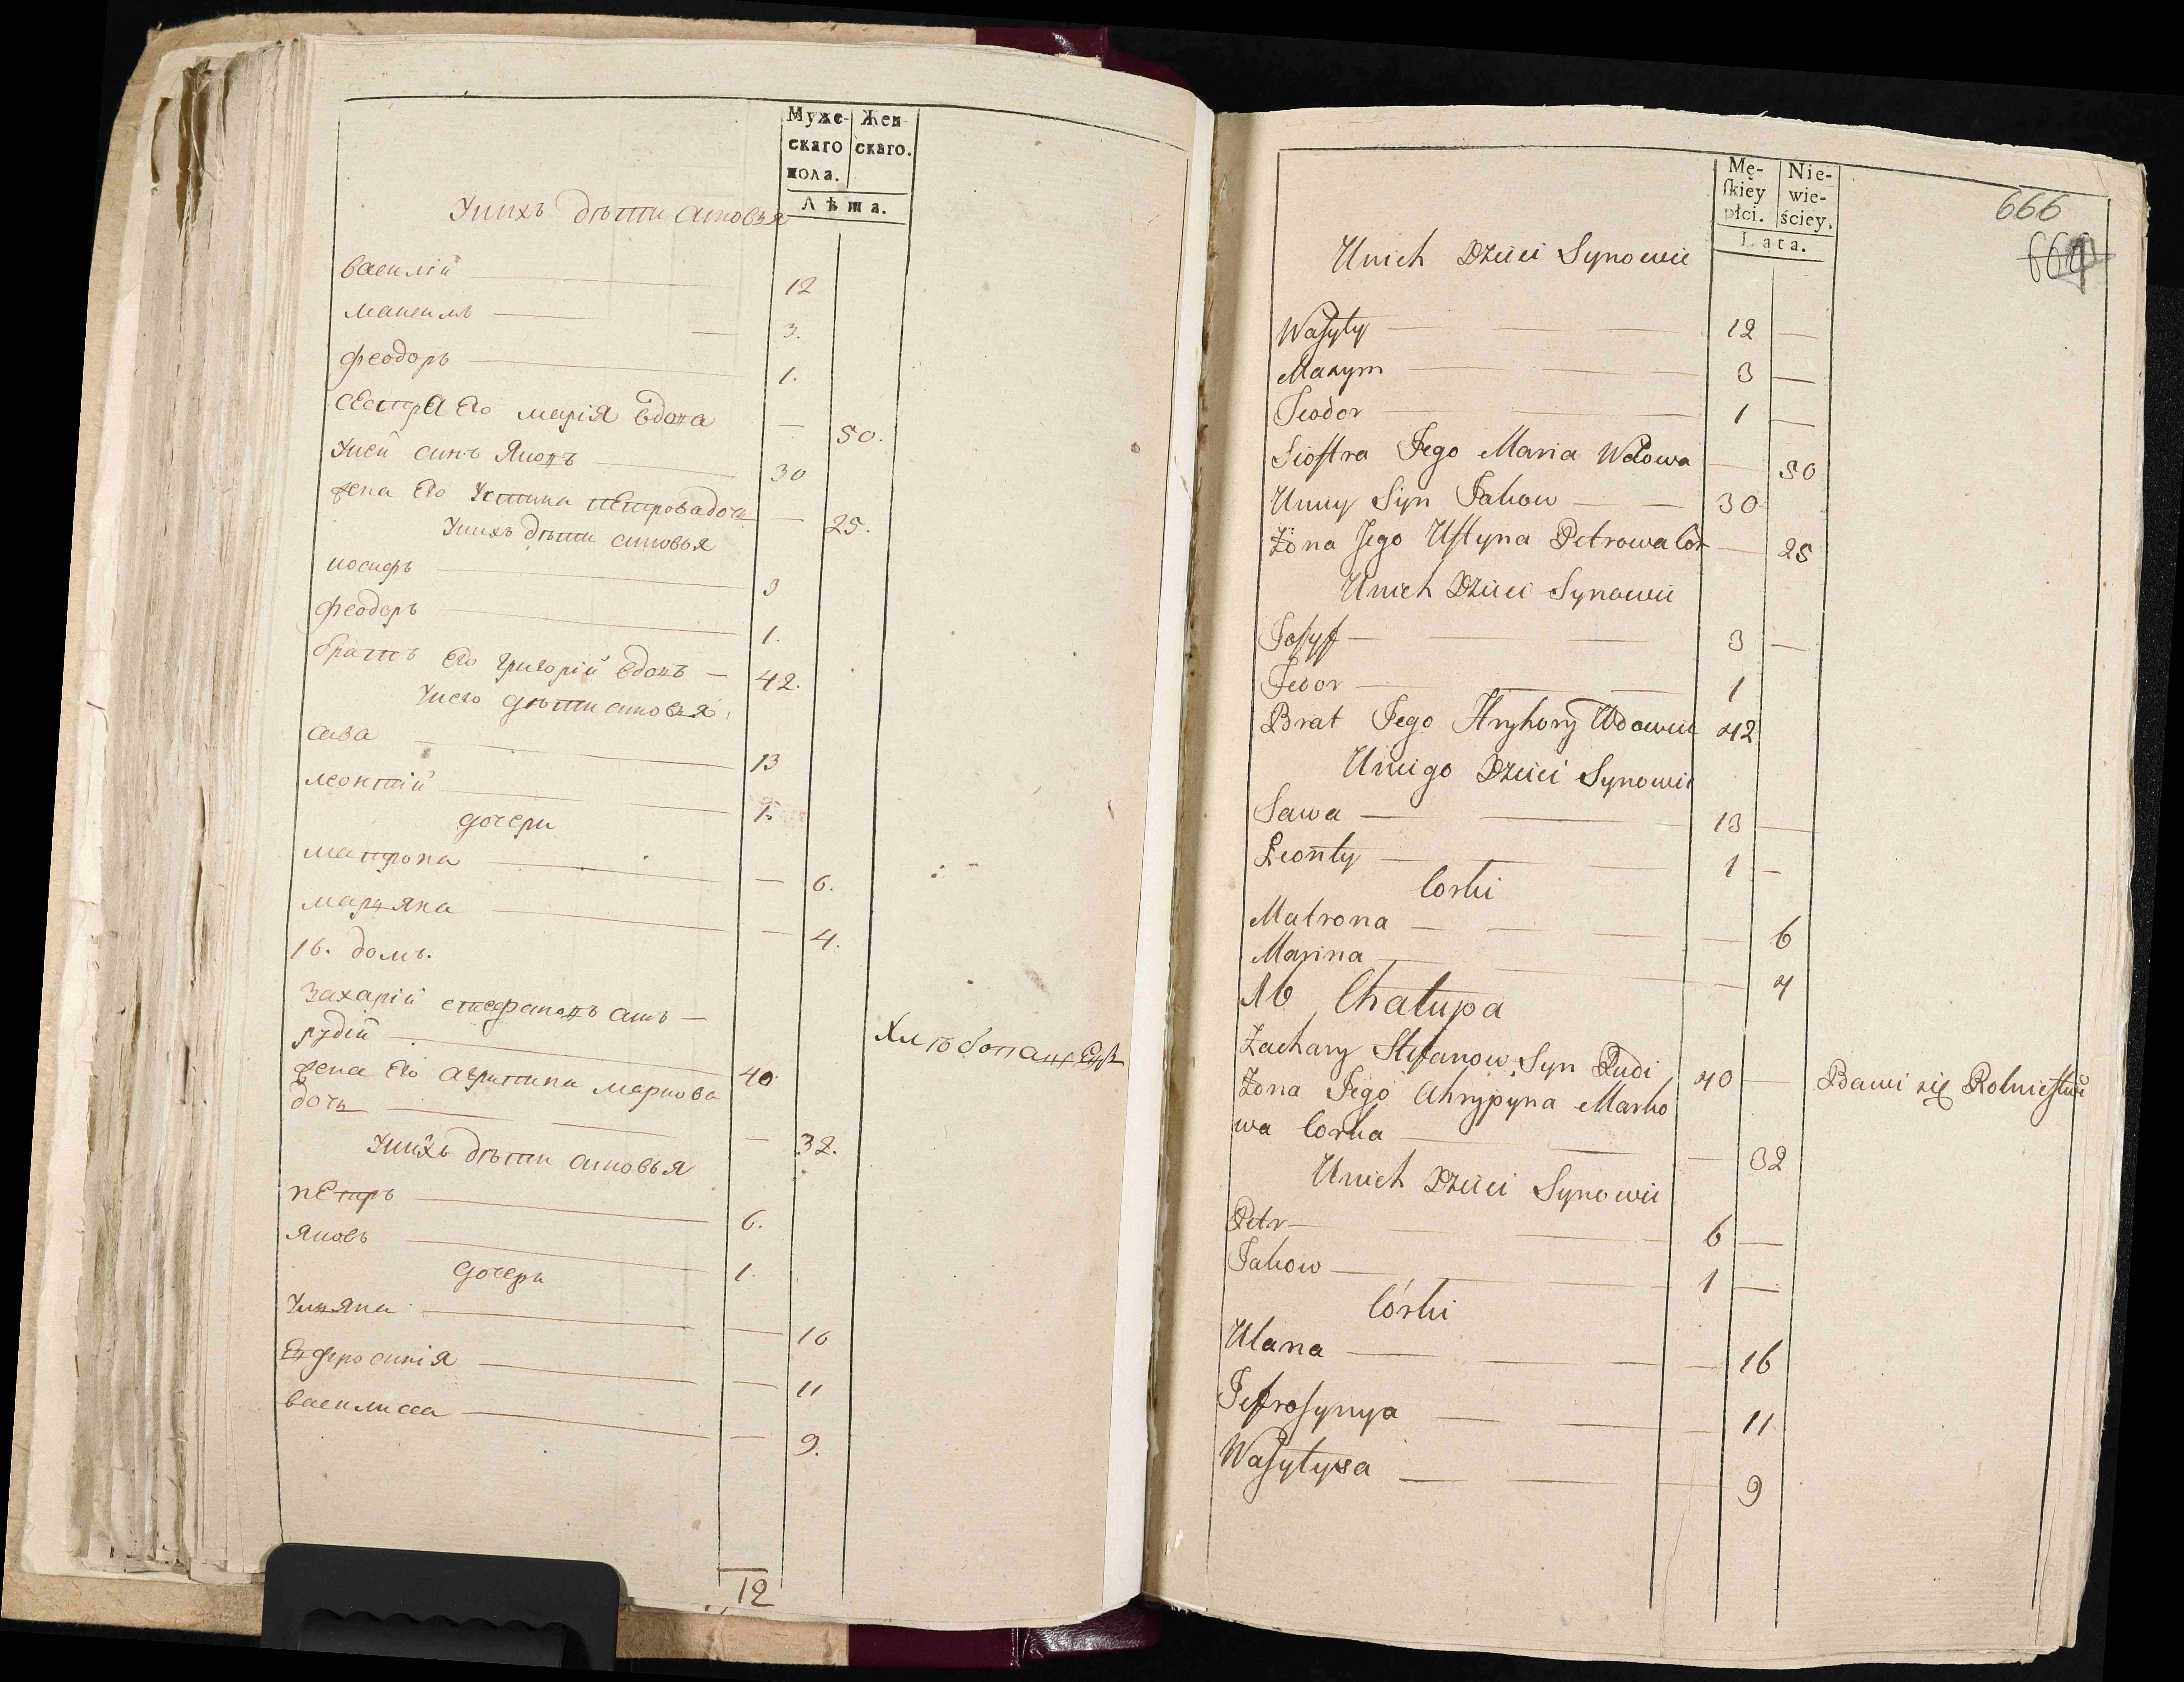 Муже-
скаго
пола.
Жен
скаго.
Лѣта.
Унихъ дѣти синовья
василій 12
максимъ 3.
феодоръ 1.
сестра его марія вдова — 50.
Уней синъ Яковъ 30
жена его Устина петровадочь — 25.
Унихъ дѣти синовья
иосифъ 3
феодоръ 1.
братъ его григорій вдовъ — 42.
Унего дѣти синовья
сава 13
леонтій 1.
дочери
матрона — 6.
марьяна — 4.
16. домъ.
Захарій стефановъ синъ —
рудій 40
Хлѣбопашецъ
жена его агрипина маркова
дочь — 32.
Унихъ дѣти синовья
петръ 6.
яковъ 1.
дочери
Ульяна — 16
Ефросинія — 11
василиса — 9.
12
Mę-
ſkiey
płci.
Nie-
wie-
ściey.
Lata.
666
Unich Dzieci Synowie
Waſyly 12 —
Maxym 3 —
Feodor 1 —
Sioſtra Jego Maria Wdowa — 50
Uniey Syn Jakow — 30
Żona Jego Uſtyna Petrowa Cór — 25
Unich Dzieci Synowie
Joſyf 3 —
Fedor 1
Brat Jego Hryhory Wdowiec 42
Uniego Dzieci Synowie
Sawa 13 —
Leonty 1 —
Corki
Matrona — 6
Marina — 4
16 Chałupa
Zachary Stefanow Syn Rudi 40 — Bawi się Rolnictwē
Żona Jego Ahrypyna Marko
wa Corka — 32
Unich Dzieci Synowie
Petr 6 —
Jakow 1 —
Córki
Ulana — 16
Jefroſynya — 11
Waſylysa — 9